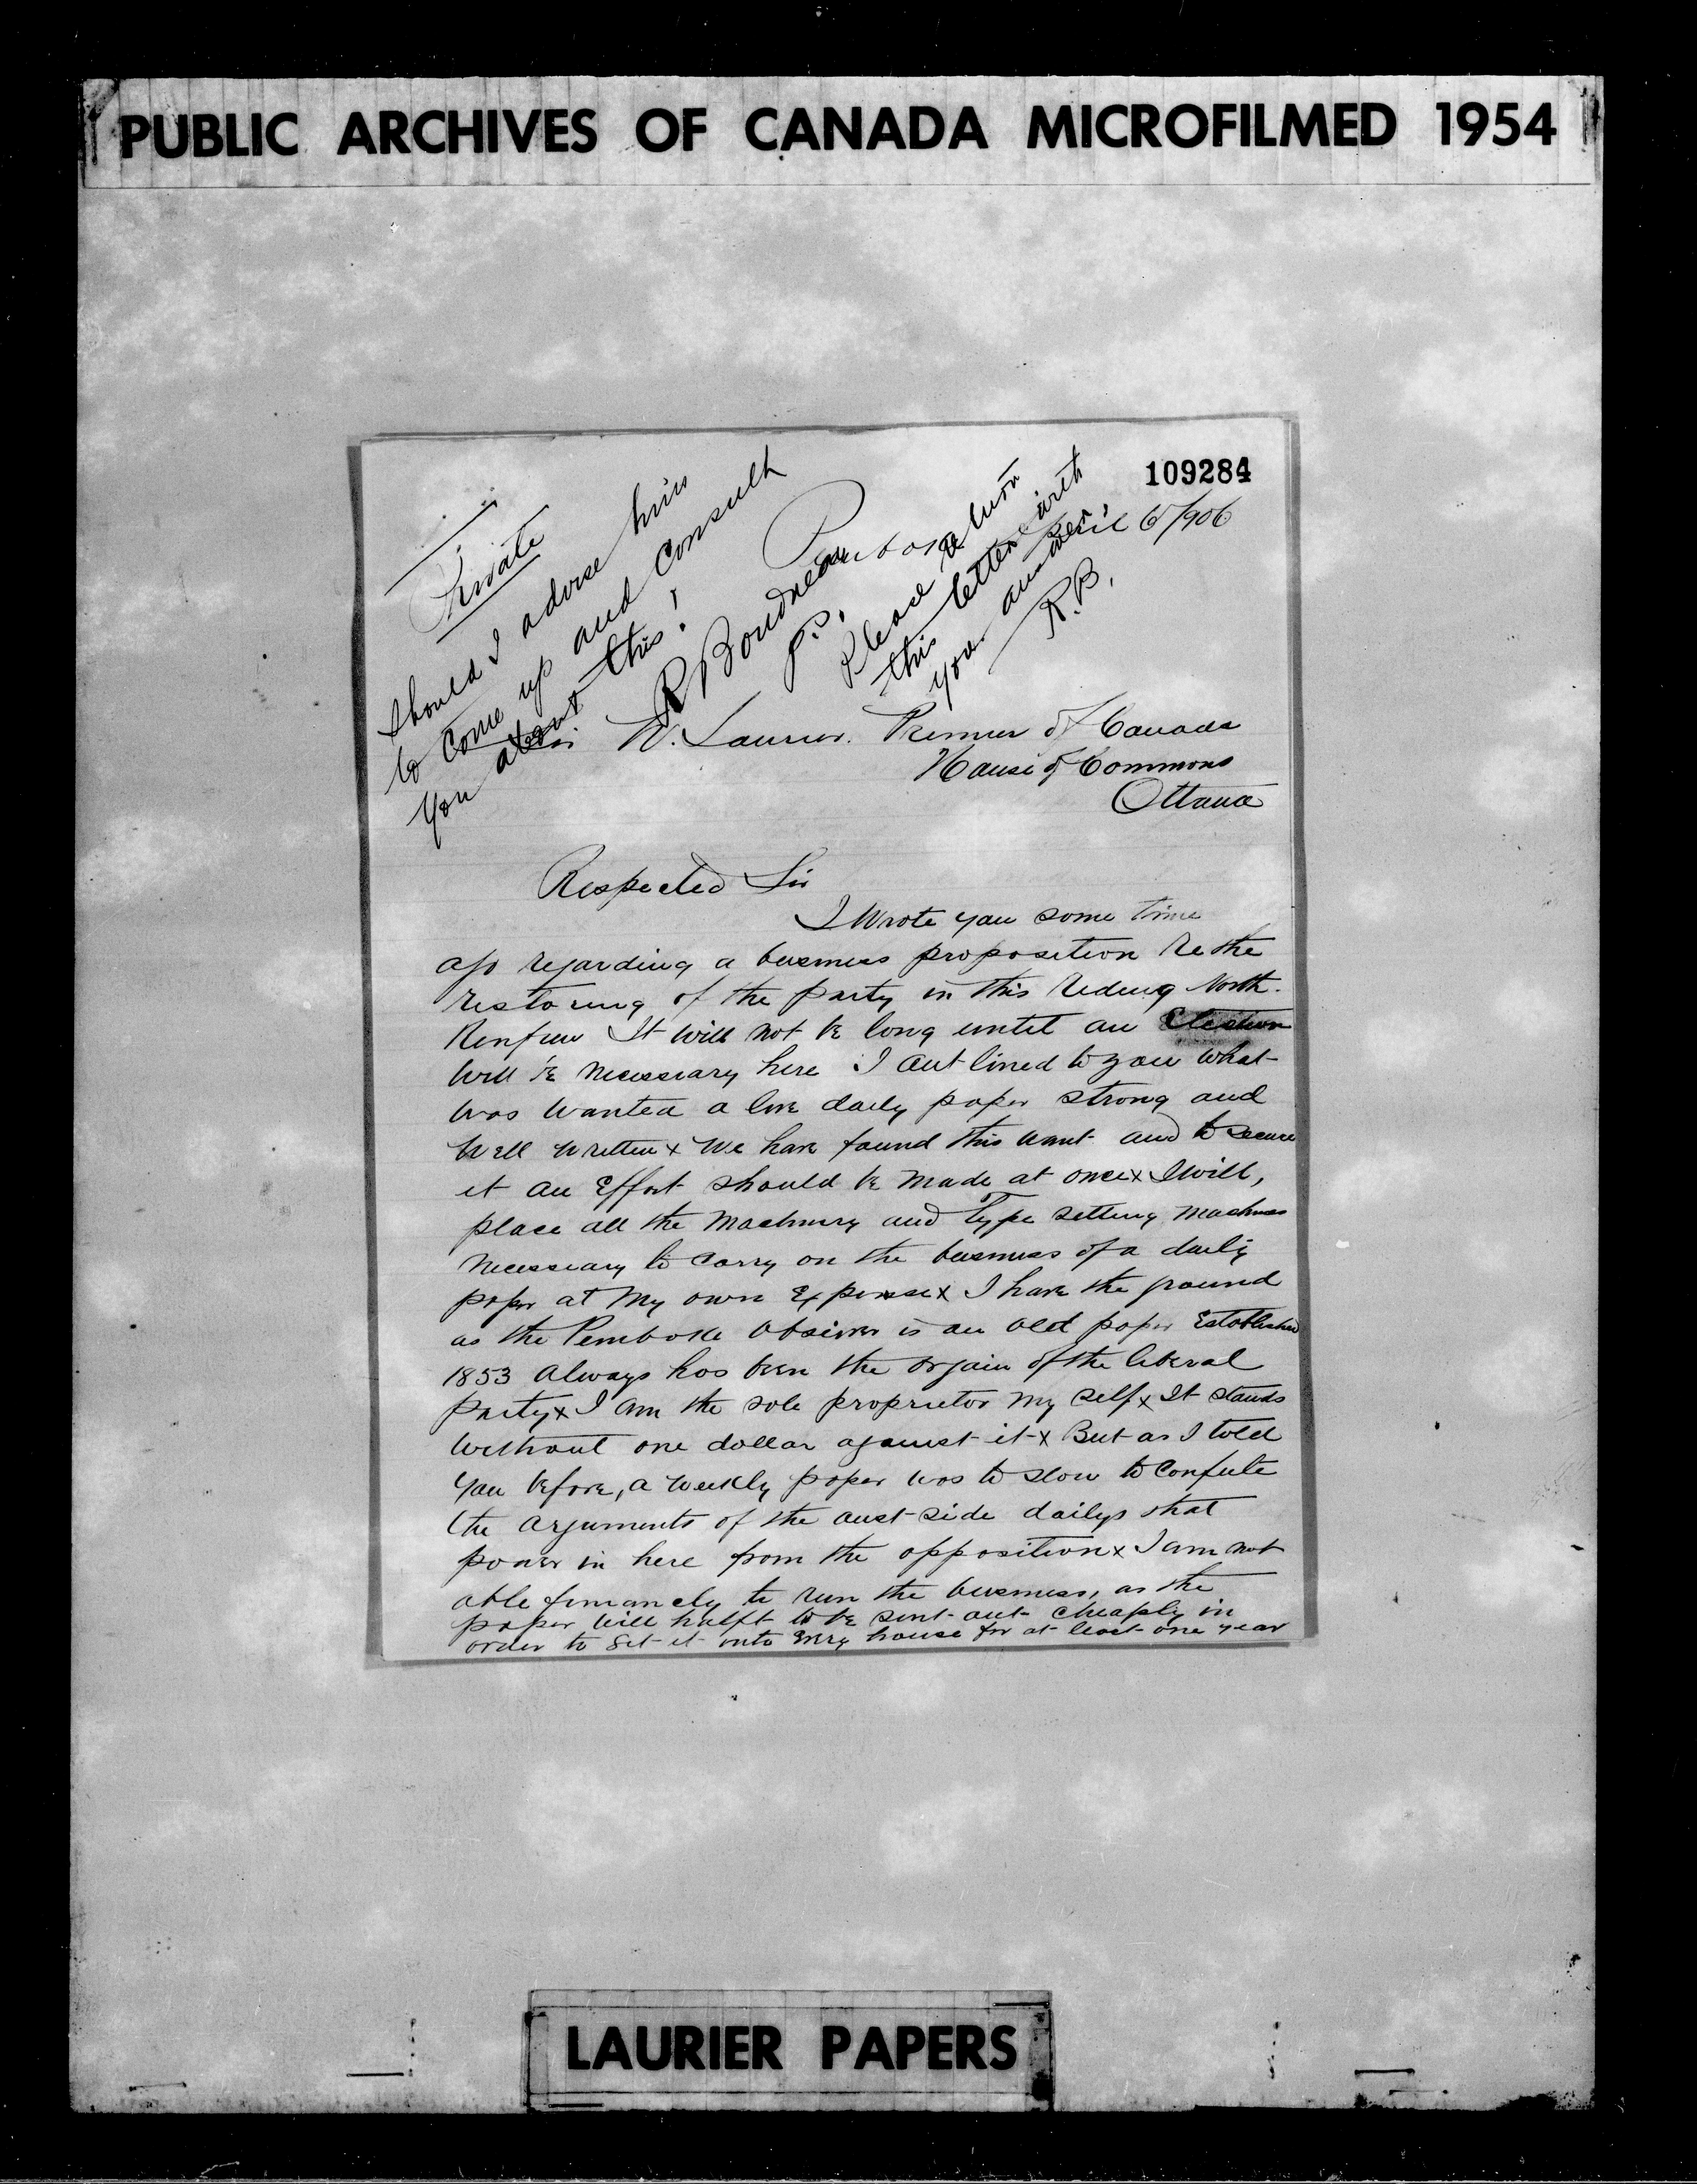 PUBLIC ARCHIVES OF CANADA MICROFILMED 1954
109284
Private
Should I advise him
to come up and consult
you about this!
R Boudreau
P.S.
Please return
this letter with
your answer
R.B.
Pembroke April 6/906
Sir W. Laurier. Premier of Canada
House of Commons
Ottawa
Respected Sir
I Wrote you some time
ago regarding a business proposition Re the
restoring of the party in this Riding North.
Renfrew It will not be long until an Election
will be necessary here I out lined to you what
was wanted a live daily paper strong and
well written x We have found this want and to secure
it an Effort should be made at once x I will,
place all the Machinery and Type setting machines
necessary to carry on the business of a daily
paper at my own Expense x I have the ground
as the Pembroke Observer is an old paper Established
1853 always has been the orgain of the liberal
party x I am the sole proprietor my self x It stands
without one dollar against it x But as I told
you before, a weekly paper was to slow to Confute
the arguments of the out side dailys that
power in here from the opposition x I am not
able finanncely to run the business, as the
paper will halft to be sent out cheaply in
order to get it into Every house for at least one year
LAURIER PAPERS